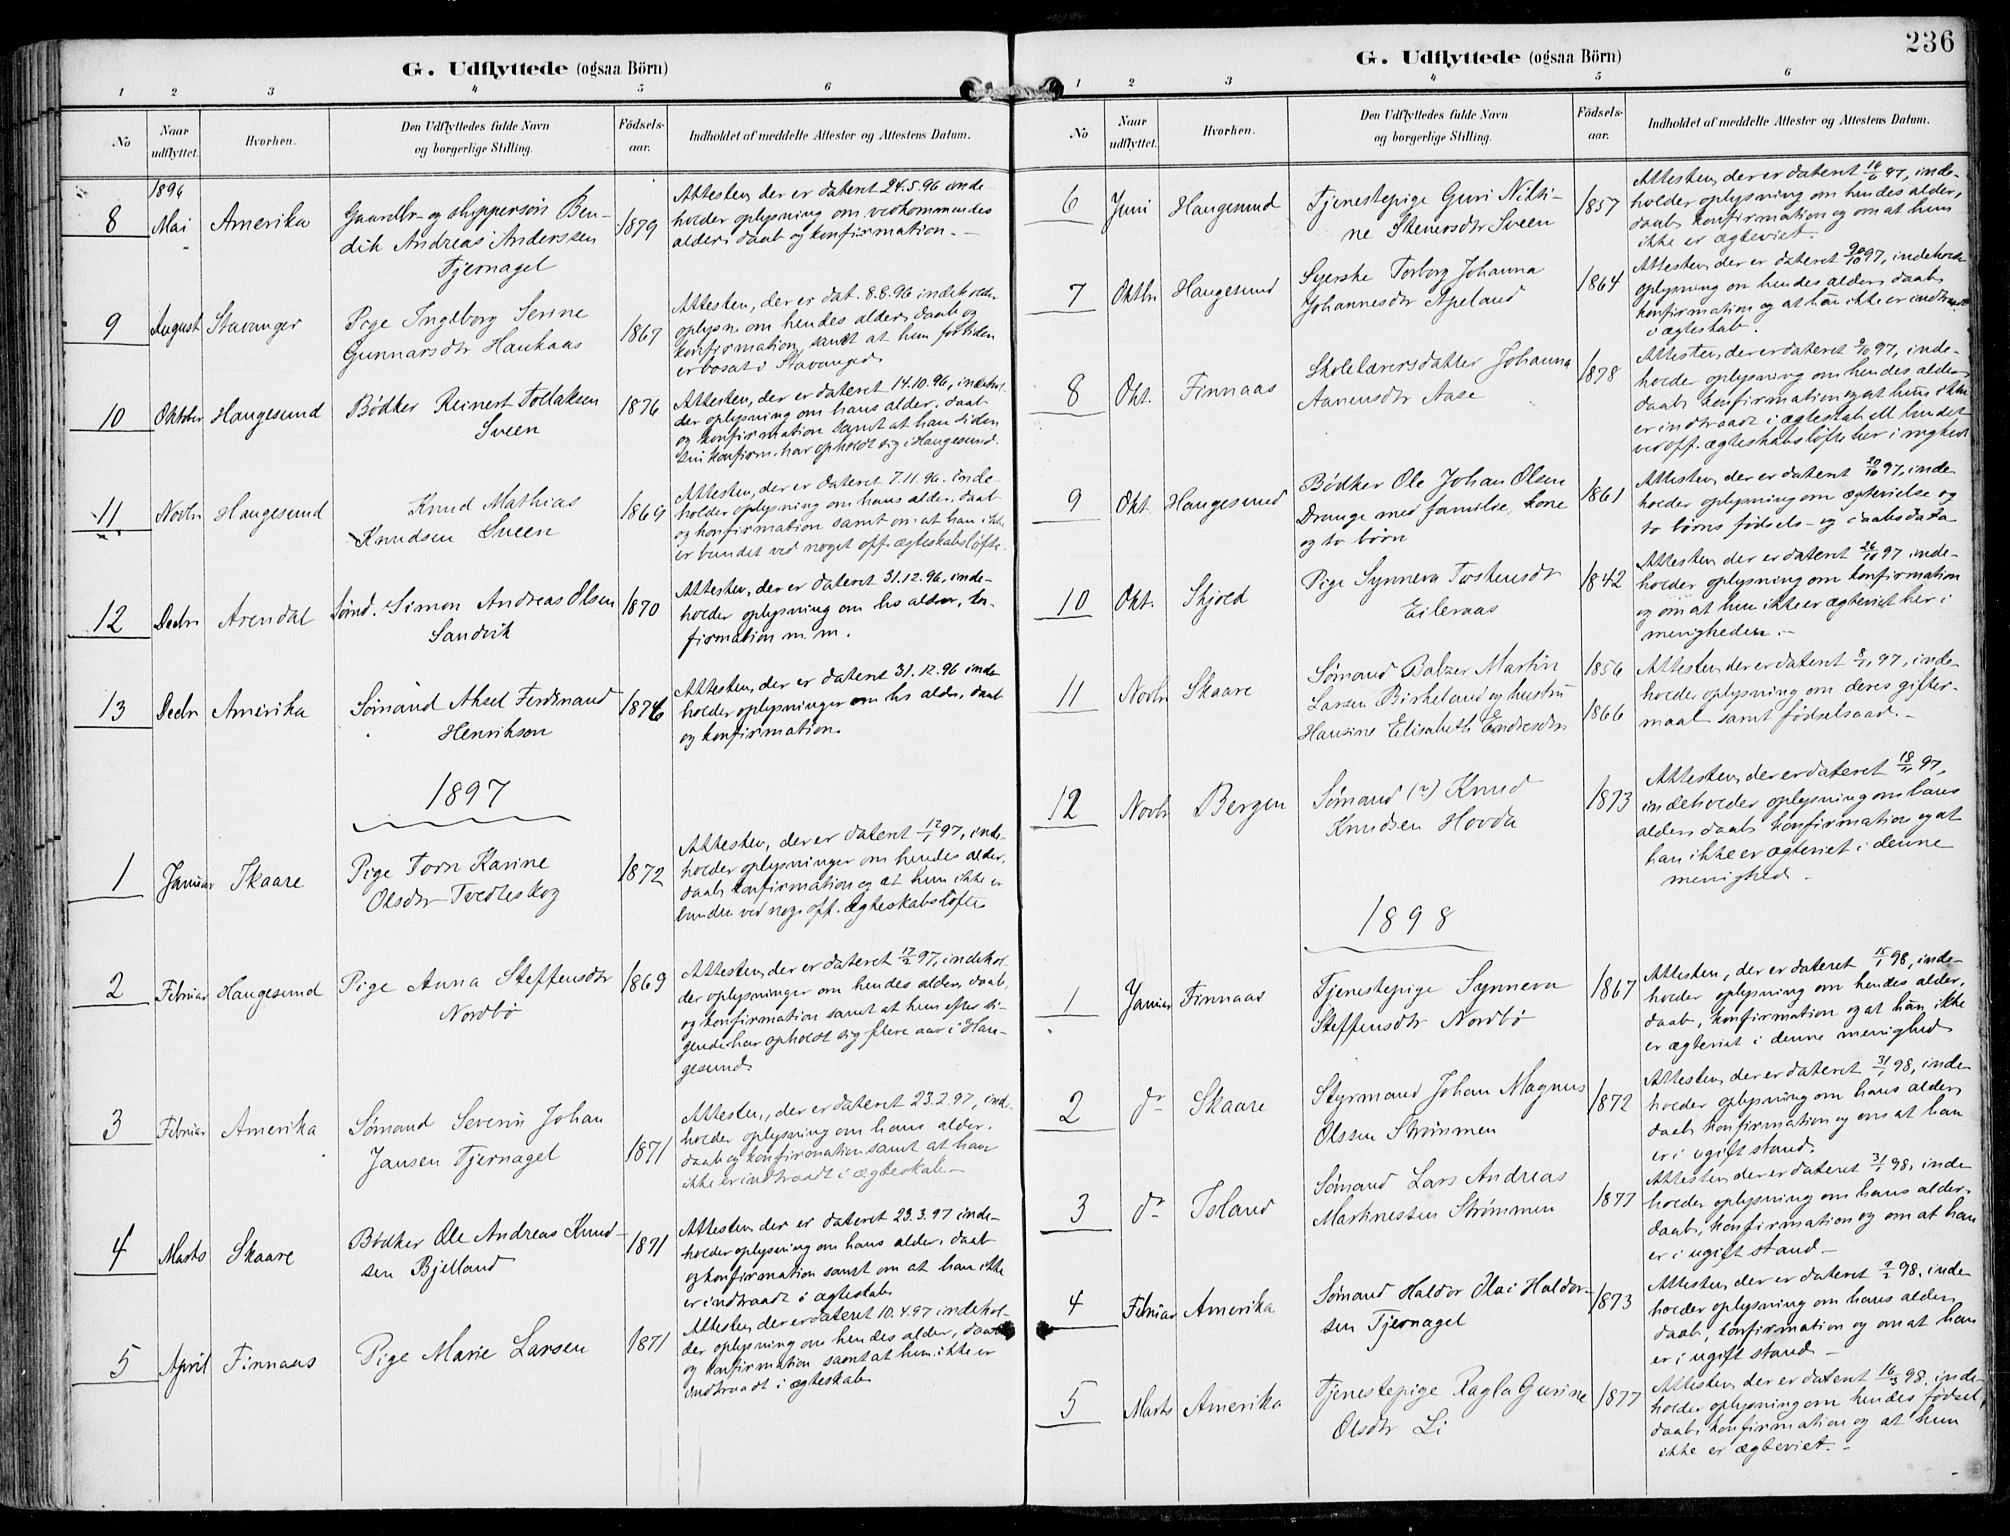 G. Udflyttede (ogsaa Börn)
1 2 3 4 5 6
No Naar udflyttet. Hvorhen. Den Udflyttedes fulde Navn og borgerlige Stilling. Fødsels-aar. Indholdet af meddelte Attester og Attestens Datum.
1896
8 Mai Amerika Gaardbr- og skippersøn Ben- 1879 Attesten, der er dateret 24.5.96 inde-
dik Andreas Anderssen holder oplysning om vedkommendes
Tjernagel alder, daab og konfirmation.
9 August Stavanger Pige Ingeborg Serine 1867 Attesten, der er dat. 8.8.96 indeholder
Gunnarsdtr Haukaas oplysn. om hendes alder, daab og
konfirmation, samt at hun for tiden
er bosat i Stavanger
10 Oktober Haugesund Bødker Reinert Tollaksen 1876 Attesten, der er dateret 14.10.96, indehol-
Sveen der oplysning om hans alder, daab
og konfirmation samt at han siden
sin konfirm. har opholdt sig i Haugesund.
11 Novbr Haugesund Knud Mathias 1869 Attesten, der er dateret 7.11.96. inde-
Knudsen Sveen holder oplysning om hans alder, daab
og konfirmation samt om at han ikke
er bundet ved noget off. ægteskabsløfte.
12 Decbr Arendal Sømd. Simon Andreas Olsen 1870 Attesten, der er dateret 31.12.96, inde-
Sandvik holder oplysning om hs alder, kon-
firmation m. m.
13 Decbr Amerika Sømand Aksel Ferdinand 1876 Attesten, der er dateret 31.12.96 inde
Henrikson holder oplysninger om hs alder, daab
og konfirmation.
1897
1 Januar Skaare Pige Torn Karine 1872 Attesten, der er dateret 12/1 97, inde-
Olsdtr Tvedteskog holder oplysninger om hendes alder,
daab konfirmation og at hun ikke er
bunden ved noge off. ægteskabsløfte
2 Februar Haugesund Pige Anna Steffensdtr 1869 Attesten, der er dateret 17/2 97, indehol-
Nordbø der oplysninger om hendes alder, daab,
og konfirmation samt at hun efter si-
gende har opholdt sig flere aar i Hau-
gesund.
3 Februar Amerika Sømand Severin Johan 1871 Attesten, der er dateret 23.2.97, inde-
Jansen Tjernagel holder oplysning om hans alder,
daab og konfirmation samt at han
ikke er indtraadt i ægteskab.
4 Marts Skaare Bødker Ole Andreas Knud- 1871 Attesten, der er dateret 23.3.97 inde-
sen Bjelland holder oplysning om hans alder, daab
og konfirmation samt om at han ikke
er indtraadt i ægteskab
5 April Finnaas Pige Marie Larsen 1871 Attesten, der er dateret 10.4.97 indehol-
der oplysning om hendes alder, daab
og konfirmation samt at hun ikke er
indtraadt i ægteskab
236
G. Udflyttede (ogsaa Börn)
1 2 3 4 5 6
No Naar udflyttet. Hvorhen. Den Udflyttedes fulde Navn og borgerlige Stilling. Fødsels-aar. Indholdet af meddelte Attester og Attestens Datum.
6 Juni Haugesund Tjenestepige Guri Niki- 1857 Attesten, der er dateret 16/6 97, inde-
ne Stenersdtr Sveen holder oplysning om hendes alder,
daab, konfirmation og om at hun
ikke er ægteviet.
7 Oktbr Haugesund Syerske Torborg Johanna 1864 Attesten, der er dateret 9/10 97, indeholder
Johannesdtr Apeland oplysning om hendes alder, daab
konfirmation og at hun ikke er indtraadt
i ægteskab.
8 Okt. Finnaas Skolelærersdatter Johanna 1878 Attesten, der er dateret 9/10 97, inde-
Aanensdtr Aase holder oplysning om hendes alder
daab, konfirmation og at hun ikke
er indtraadt i ægteskab ell. bundet
ved off. ægteskabsløfte her i mghed
9 Okt. Haugesund Bødker Ole Johan Olsen 1861 Attesten, der er dateret 20/10 97, inde-
Drange med familie, kone holder oplysning om ægtevielse og
og to børn to børns fødsels- og daabsdata
10 Okt. Skjold Pige Synneva Tostensdtr 1842 Attesten, der er dateret 26/10 97 inde-
Eileraas holder oplysning om konfirmation
og om at hun ikke er ægteviet her i
menigheden.
11 Novbr Skaare Sømand Balzer Martin 1856 Attesten, der er dateret 8/11 97, inde-
Larsen Birkeland og hustru holder oplysning om deres gifter-
Hansine Elisabeth Endresdtr. 1866 maal samt fødselsaar.
12 Novbr Bergen Sømand (?) Knud 1873 Attesten, der er dateret 18/11 97,
Knudsen Hovda indeholder oplysning om hans
alder, daab, konfirmation og at
han ikke er ægteviet i denne
menighed.
1898
1 Januar Finnaas Tjenestepige Synneva 1867 Attesten, der er dateret 15/1 98, inde-
Steffensdtr Nordbø holder oplysning om hendes alder,
daab, konfirmation og at hun ikke
er ægteviet i denne menighed
2 do Skaare Styrmand Johan Magnus 1872 Attesten, der er dateret 31/1 98, inde
Olssen Strømmen holder oplysning om hans alder,
daab, konfirmation og om at han
er i ugift stand.
3 do Island Sømand Lars Andreas 1877 Attesten, der er dateret 31/1 98, inde
Martinessen Strømmen holder oplysning om hans alder.
daab, konfirmation og om at han
er i ugift stand
4 Februar Amerika Sømand Haldor Olai Haldor- 1873 Attesten, der er dateret 9/2 98, inde
sen Tjernagel holder oplysning om hans alder,
daab, konfirmation og om at han
er i ugift stand
5 Marts Amerika Tjenestepige Ragla Gurine 1877 Attesten, der er dateret 16/3 98, inde
Olsdtr Li holder oplysning om hendes fødsel,
daab, konfirmation og at hun
ikke er ægteviet.